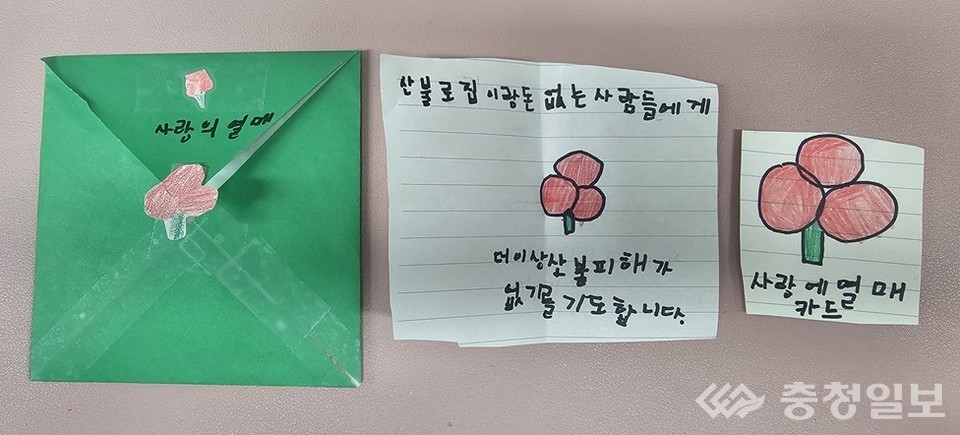 사랑의 열매
산불로 집이랑돈 없는 사람들에게
더이상산불피해가
없기를 기도합니다.
사랑에열매
카드
충청일보